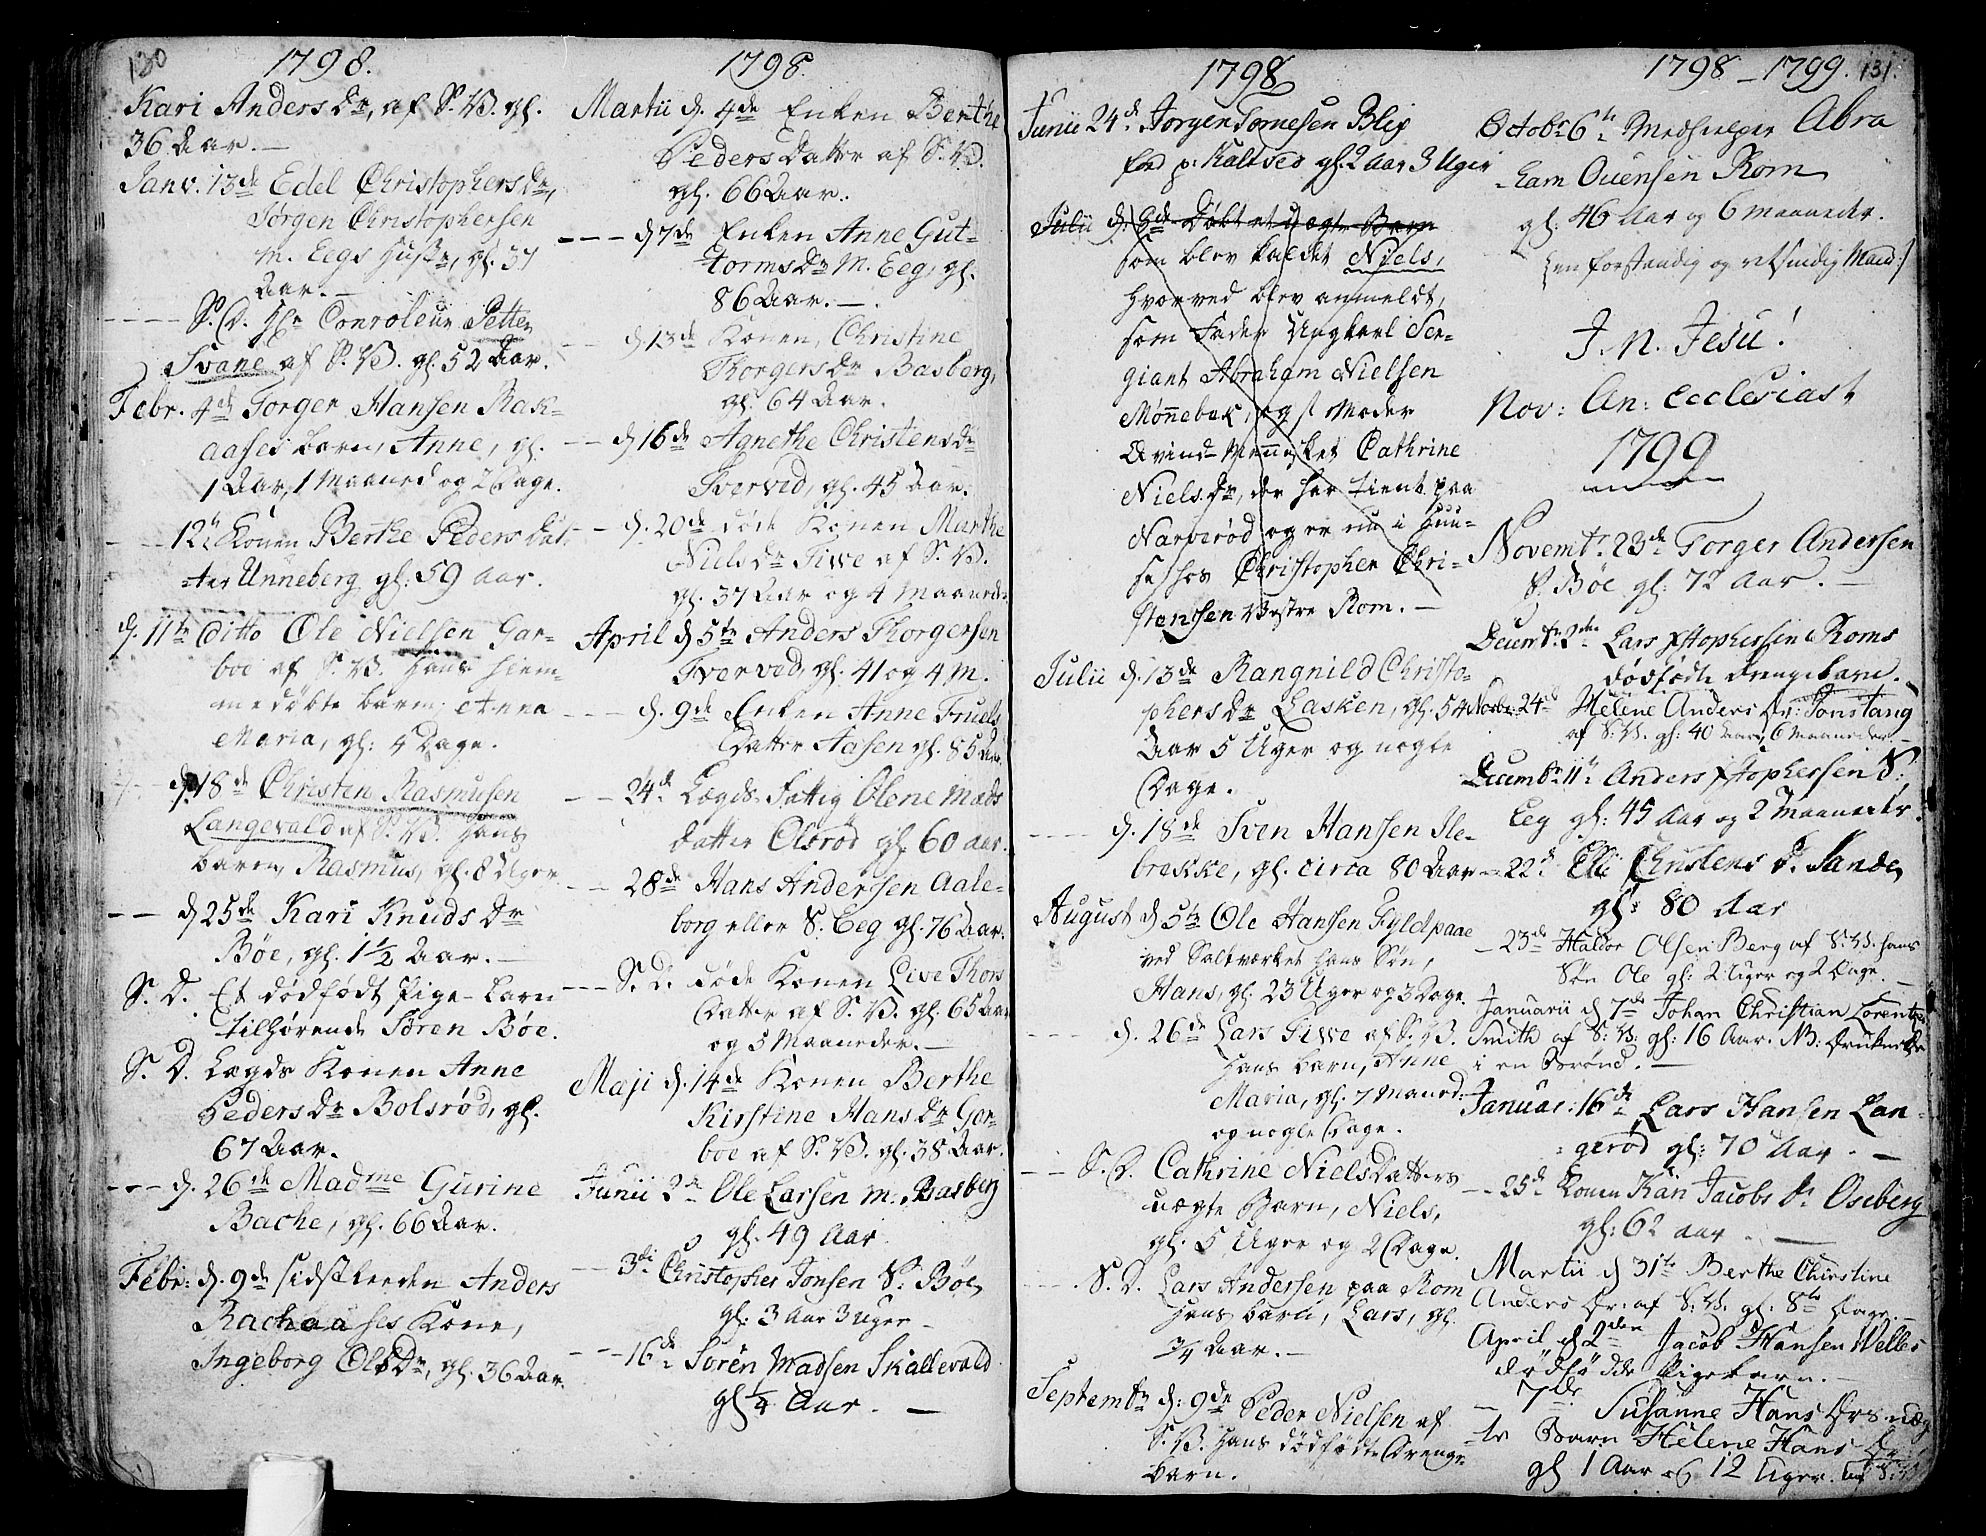 130
1798.
Kari Anders Dr, af S. B. gl.
36 Aar. —
Janv. 13de Edel Christophers Dr,
Jørgen Christophersen
m. Eegs Hustr, gl. 37
Aar. —
S. D. Hr Conroleur Petter
Svane af S. B. gl. 52 Aar.
Febr. 4de Torger Hansen Rak-
aases barn, Anne, gl.
1 Aar, 1 Maaned og 2 Dage.
12te Konen Berthe Peders Dat-
ter Unneberg gl: 59 Aar.
d. 11te ditto Ole Nielsen Gar-
boe af S. B. hans hiem-
medøbte barn, Anna
Maria, gl: 4 Dage.
d. 18de Christen Rasmusen
Langevald af S. B. hans
barn, Rasmus, gl. 8 Uger
d. 25de Kari Knuds Dr
Bøe, gl. 1 1/2 Aar. —
S. D. Et dødfødt Pige-barn
tilhørende Søren Bøe.
S. D. Lægds Konen Anne
Peders Dr Bolsrød, gl.
67 Aar.
d. 26de Madme Gurine
Bache, gl. 66 Aar.
Febr: d. 9de sidstleeden Anders
Rachaases Kone,
Ingeborg Ols Dr, gl. 36 Aar.
1798.
Martii d. 4de Enken Berthe
Peders Datter af S. B.
gl. 66 Aar.
d. 7de Enken Anne Gut-
torms Dr M. Eeg, gl.
86 Aar. —
d. 13de Konen, Christine
Thorgers Dr Basberg,
gl. 64 Aar.
d. 16de Agnethe Christens Dr
Tverved, gl. 45 Aar.
d. 20de døde Konen Marthe
Niels Dr Tiwe af S. B.
gl. 37 Aar og 4 Maaneder
April d. 5te Anders Thorgersen
Tverved, gl. 41 og 4 M.
d. 9de Enken Anne Truels
Datter Aasen gl. 85 Aar.
24de Lægds Fattig Olene Mads
datter Olsrød gl. 60 aar.
28de Hans Andersen Aale-
borg eller S. Eeg gl. 76 Aar.
S. D. døde Konen Live Thors
Datter af S. B. gl. 65 Aar
og 5 Maaneder. —
Maji d. 14de Konen Berthe
Kirstine Hans Dr Gar-
boe af S. B. gl. 38 Aar.
Junii 2de Ole Larsen m. Basberg
gl. 49 Aar
3de Christopher Jonsen S. Bøe
gl: 3 Aar 3 Uger —
16de Søren Madsen Skallevald
gl 1/4 Aar. —
1798
Junii 24de Jørgen Tornesen Blix
fød p: Kaltsed gl. 2 Aar 3 Uger
Julii d. 8de Døbt et uægte Barn
som blev kaldet Niels,
hvorved blev anmeldt,
som Fader Ungkarl Ser-
giant Abraham Nielsen
Mønnebek, og st Moder
Qvinde Mennisket Cathrine
Niels Dr, der har tient paa
Narverød og er nu i Huu-
se hos Christopher Chri-
stensen Vestre Rom. —
Julii d. 13de Rangnild Christo-
phers Dr Lasken, gl. 54
Aar 5 Uger og nogle
Dage.
d. 18de Sven Hansen Ile-
brekke, gl. circa 80 Aar
August d. 5te Ole Hansen Fyldpaae
ved Saltværket hans Søn,
Hans, gl. 23 Uger og 3 Dage.
d. 26de Lars Tiwe af S. B.
hans barn, Anne
Maria, gl. 7 Maaned.
og nogle Dage.
S. D. Cathrine Niels Datters
uægte Barn, Niels,
gl. 5 Uger og 2 Dage.
S. D. Lars Andersen paa Rom
hans barn, Lars, gl.
3/4 Aar. —
Septembr d. 9de Peder Nielsen af
S. B. hans dødfødte Drenge-
barn.
1798 – 1799. 131.
Octobr 6te Medhielper Abra
ham Ouensen Rom
gl: 46 Aar og 6 Maaneder.
|: en forstandig og retsindig Mand :|
J. N. Jesu!
Nov: An: Ecclesiast
1799
Novembr 23de Torger Andersen
S. Bøe gl: 72 Aar. —
Decembr 2den Lars Xstophersen Roms
dødfødte drengebarn. —
Novbr 24de Helene Anders Dr: Jonstang
af S: B. gl: 40 Aar, 6 Maaneder. —
Decembr 11te Anders Xstophersen S:
Eeg gl: 45 Aar og 2 Maaneder.
22de Elli Christens Dr Sande,
gl: 80 Aar
23de Haldor Olsen Berg af S: B. hans
Søn Ole gl: 2 Uger og 2 Dage. —
Januarii d. 7de Johan Christian Lorentz
Smith af S: B: gl: 16 Aar. NB: druknede
i en Brønd. —
Januar: 16de Lars Hansen Lan-
gerød gl: 70 Aar. —
25de Konen Kari Jacobs Dr Oseberg
gl: 62 aar. —
Martii d 31te Berthe Christine
Anders Dr: af S: B. gl: 8te Dage. —
April d 2den Jacob Hansen Welles
dødfødde Pigebarn. —
7de Susanne Hans Drs uæg
te Barn Helene Hans Dr
gl 1 Aar og 12 Uger. af S: B.